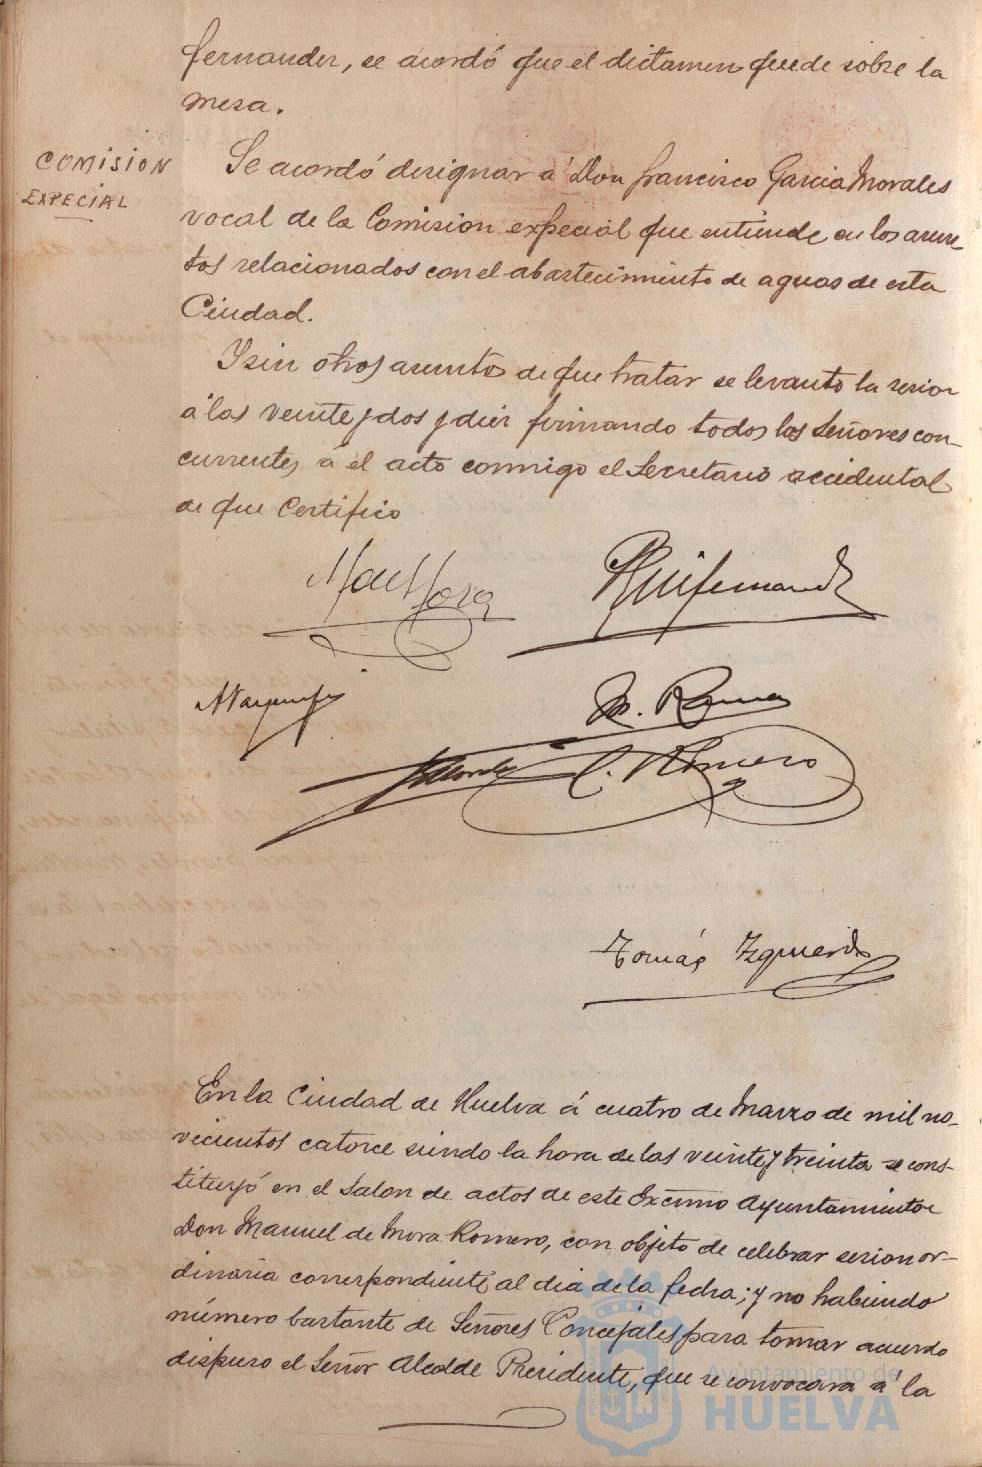 fernandez, se acordó que el dictamen quede sobre la
mesa.
COMISION
EXPECIAL
Se acordó designar á Don francisco Garcia Morales
vocal de la Comision expecial que entiende en los asun-
tos relacionados con el abastecimiento de aguas de esta
Ciudad.
Y sin otros asuntos de que tratar se levantó la sesion
á las veinte y dos y diez firmando todos los Señores con-
currentes á el acto conmigo el Secretario accidental
de que Certifico
M de Mora
M. Romero
Tomás Izquierdo
En la Ciudad de Huelva á cuatro de Marzo de mil no-
vecientos catorce siendo la hora de las veinte y treinta se cons-
tituyó en el Salon de actos de este Excmo Ayuntamiento
Don Manuel de Mora Romero, con objeto de celebrar sesion or-
dinaria correspondiente al dia de la fecha; y no habiendo
número bastante de Señores Concejales para tomar acuerdo
dispuso el Señor Alcalde Presidente, que se convocara á la
Ayuntamiento de
HUELVA